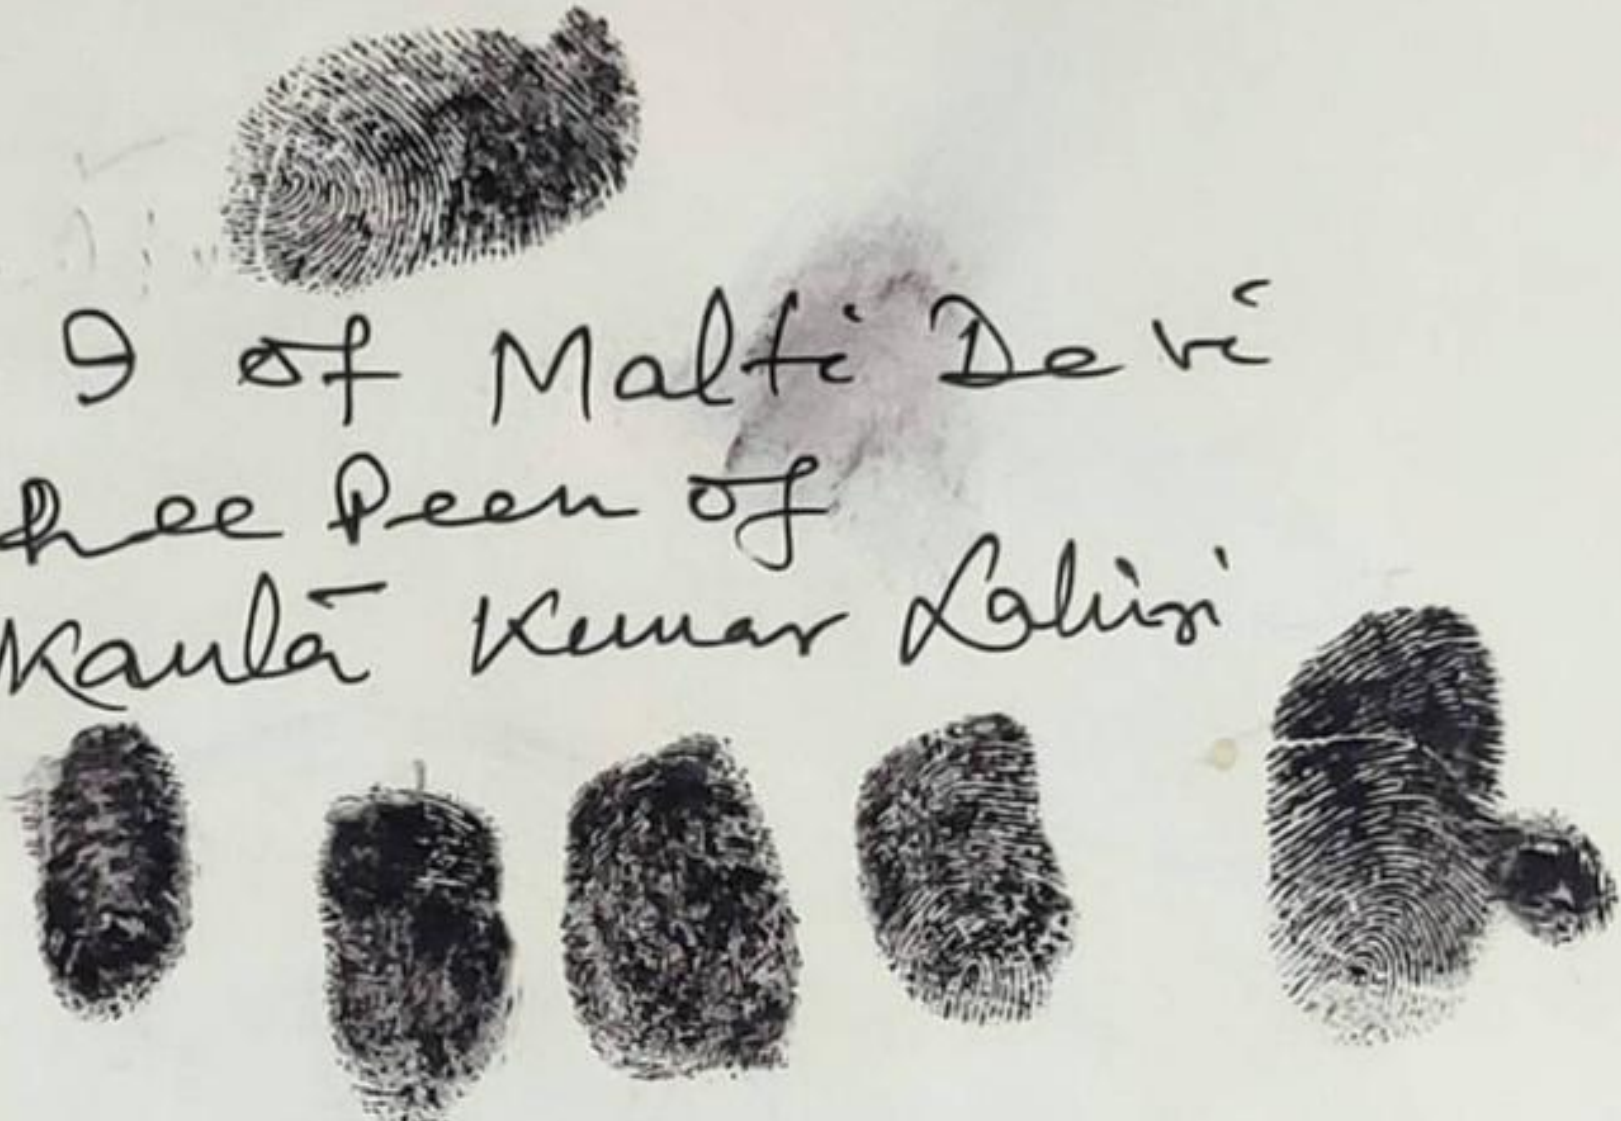 9 of Malti Devi
hee Peen of
Kanta Kumar Lahiri